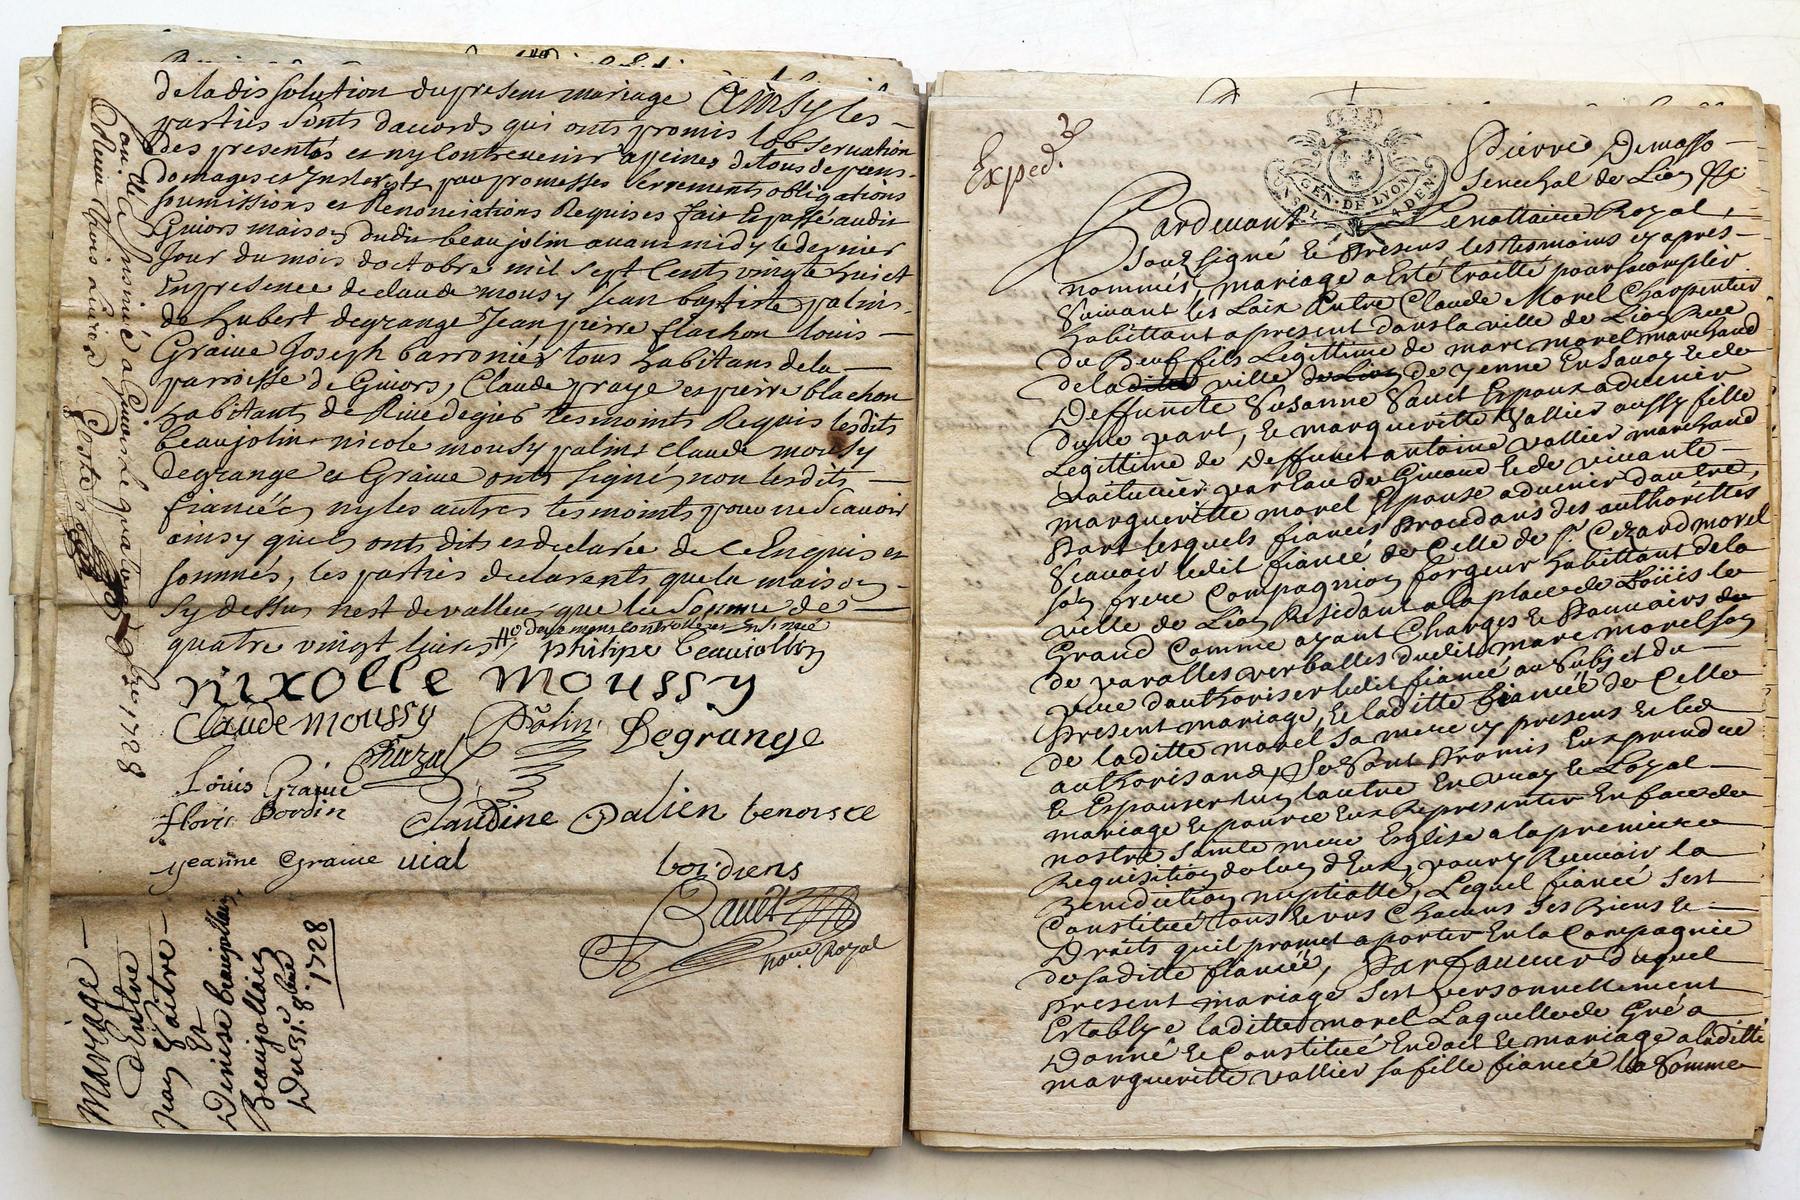 de la dissolution du present mariage Ainsy les
parties sonts daccords qui onts promis lobservation
des presentés et ny Contrevenir apeines de tous depens
domages et Interests par promesses serrements obligations
soumissions et Renonciations Requises fait et passé audit
Givors maison dudit beaujolin avant midy le dernier
Jour du mois doctobre mil sept Cents vingt huict
En presence de claude mousy Jean baptiste palins
de hubert degrange Jean pierre flachon louis
Graive Joseph barronier tous habitans de la
parroisse de Givors, Claude praye et pierre blachon
habitants de Rivedegier tesmoints Requis lesdits
beaujolin nicole mousy palins claude mousy
degrange et Graive onts signé non lesdits
fiancéés ny les autres tesmoints pour ne scavoir
ainsy quils onts dits et declarée de ce Enquis et
sommés, les parties declarants que la maison
sy dessus nest de valleur que la somme de
quatre vingt livres
philipe beaujollin
nixolle moussy
Claude moussy
palins
Degrange
Louis Graive
floris Bordin
Claudine Palien benoiste
jeanne Graive vial
bordiens
nore. Royal
1728
mariage
Entre
jean
Et
Denise beaujollain
Beaujollain
Du 31. 8bre
1728
Exped.
Pierre Demasso
Senechal de Lion &c
GEN. DE LYON
Pardevant Le nottaire Royal,
Soussigné Et Presens les tesmoins cy apres
nommés, mariage a Esté traitté pour saccomplir
Suivant les Loix Entre Claude Morel Charpentier
habittant apresent dans la ville de Lion Rue
du Beuf fils Legittime de marc morel marchand
de la ville de yenne En Savoy Et de
Deffuncte Susanne Espoux advenir
dune part, Et margueritte Vallier aussy fille
Legittime de Deffunct antoine vallier marchand
voiturier par Eau de Givord Et de vivante
margueritte morel Espouse advenir dautre
Part lesquels fiancés Procedans des authorittés
Scavoir ledit fiancé de Celle de Sr. Cezard morel
son frere Compagnion forgeur habittant de la
ville de Lion Residant a la place de Loüis le
Grand Comme ayant Charges Et Pouvoirs
de parolles verballes dudit marc morel son
pere dauthoriser ledit fiancé au Subjet du
Present mariage, Et laditte fiancée de Celle
de laditte morel sa mere cy presens Et les
authorisans, Se Sont Promis Eux prendre
Et Espouser lun lautre En vray Et Loyal
mariage Et pource Eux Representer En face de
nostre Sainte mere Eglise a la premiere
Requisition de lun dEux, pour y Recevoir la
Benediction nuptialle, Lequel fiancé Sest
Constitué tous Et uns Chacuns Ses Biens Et
Droits quil promet aporter En la Compagnie
de saditte fiancée, Par faveur duquel
present mariage Sest personnellement
Establye laditte morel Laquelle de Gré a
Donné Et Constitué En dot Et mariage a laditte
marguerite vallier sa fille fiancée la Somme